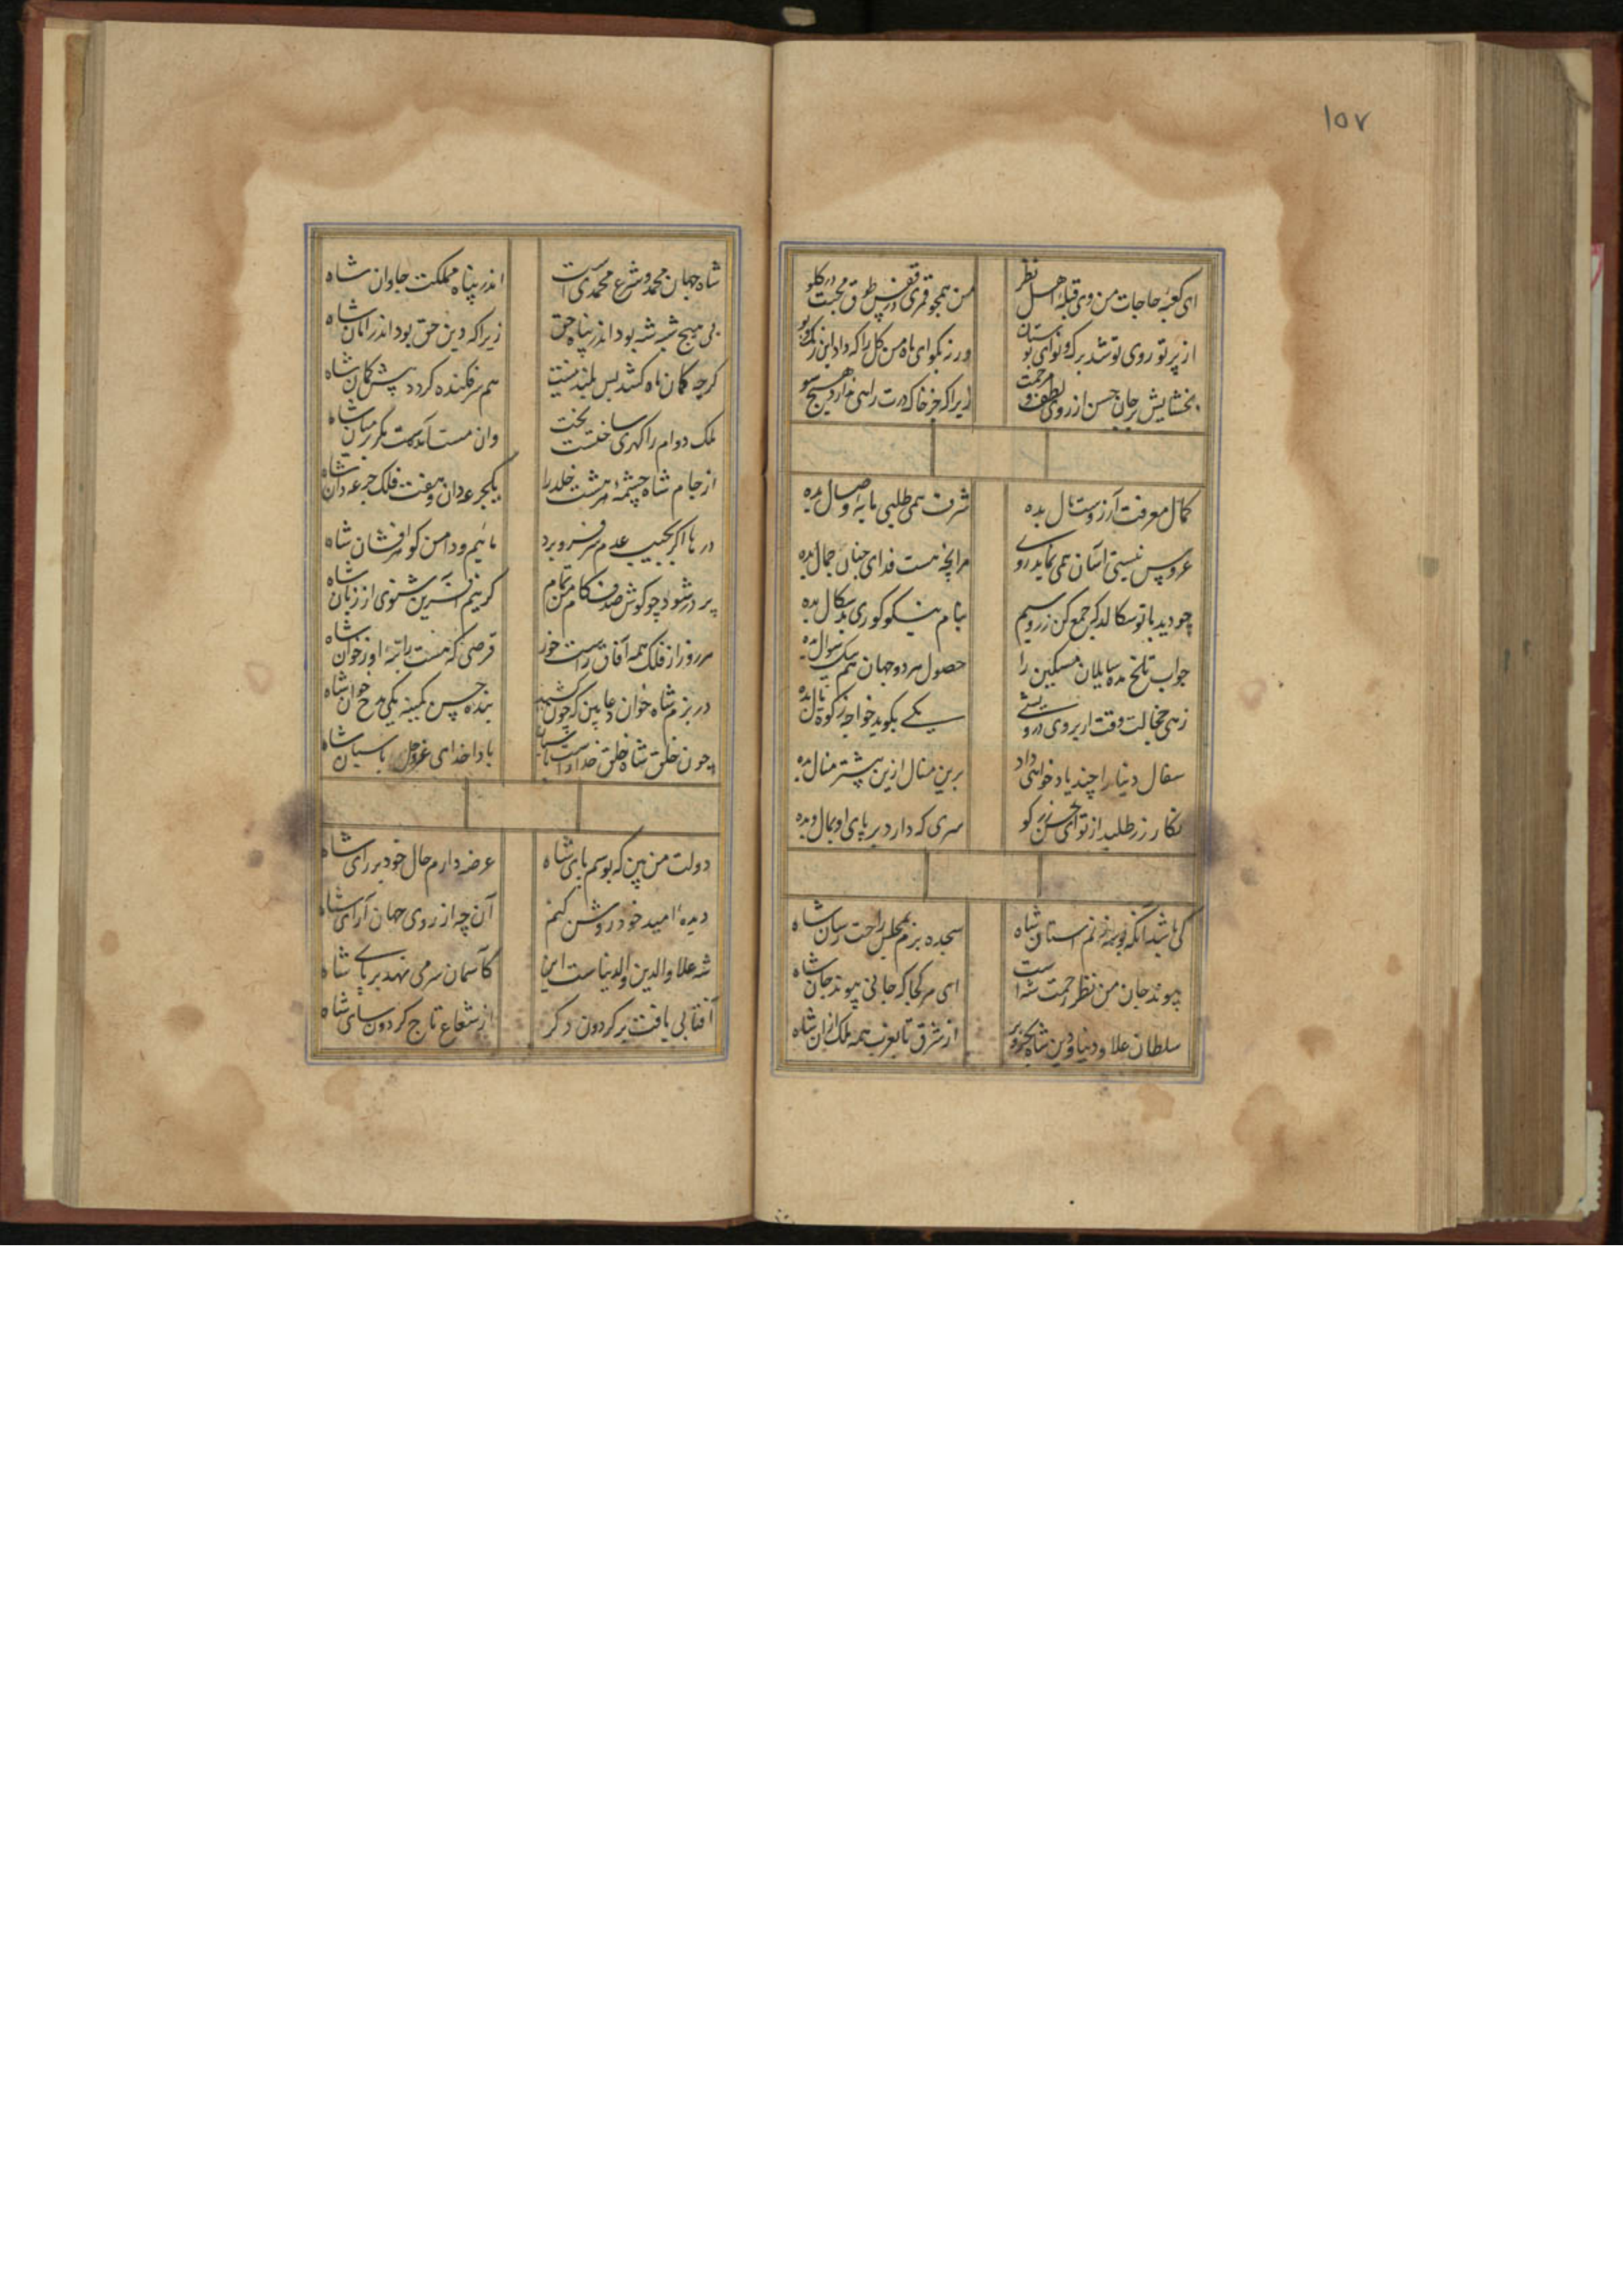 ۱۵۷
ای کعبهٔ حاجات من وی قبلهٔ اهل نظر من همچو قمری در قفس طوق محبت در گلو
از پرتو روی تو شد برگ و نوای بوستان ورنه بگو ای ماه من گل را که داد این رنگ و بو
بخشایش بر جان حسن از روی لطف و مرحمت زیرا که جز خاک درت راهی ندارد هیچ سو
کمال معرفت آرزوست مال بده شرف همی طلبی مایه وصال بده
عروس نیستی آسان نمی نماید روی هر آنچه هست فدای چنان جمال بده
چو دید با تو سکالد که جمع کن زر و سیم بنام نیکو کوری بدسکال بده
جواب تلخ مده سایلان مسکین را حصول هر دو جهان هم بیک سوال بده
زهی خجالت وقت ار بروی درویشی یکی بگوید خواجه زکوة مال بده
سفال دنیا را چند یاد خواهی داد برین مثال ازین بیشتر منال مده
نگار زر طلبد از تو ای حسن زر کو سری که دارد بر پای او بمال و بده
کی باشد آنکه بوسه زنم آستان شاه سجده برم بمجلس راحت رسان شاه
پیوند جان من نظر رحمت شه است ای هر کجا که جانی پیوند جان شاه
سلطان علاء دنیا و دین شاه بحر و بر از شرق تا بغرب همه ملک از ان شاه
شاه جهان محمد و شرع محمدی است اندر پناه مملکت جاودان شاه
بی هیچ شبه شه بود اندر پناه حق زیرا که دین حق بود اندر امان شاه
گرچه کمان ماه کشد بس بلند نیست هم سرفکنده گردد پیش کمان شاه
ملک دوام را کهری ساخت بخت وان مست آمدست مگر بر میان شاه
از جام شاه چشمهٔ هر هشت خلد را یکجرعه دان و هفت فلک جرعه دان شاه
دریا اگر بجیب عدم سر فرو برد مائیم و دامن گوهرفشان شاه
پر در شود چو گوش صدف کام من تمام گر نیم آفرین شنوی از زبان شاه
هر روز از فلک همه آفاق راست خور قرصی که هست راتبهٔ او ز خوان شاه
در بزم شاه خوان دعا بین که چون کشید بنده حسن کمینه یکی مدح خوان شاه
چون خلق شاه خلق خدا را است پاسبان بادا خدای عزوجل پاسبان شاه
دولت من بین که بوسم پای شاه عرضه دارم حال خود بر رای شاه
دیدهٔ امید خود روشن کنم آن چه از روی جهان آرای شاه
شه علاء والدین والدنیاست این کآسمان سر می نهد بر پای شاه
آفتابی یافت بر گردون دگر از شعاع تاج گردون سای شاه